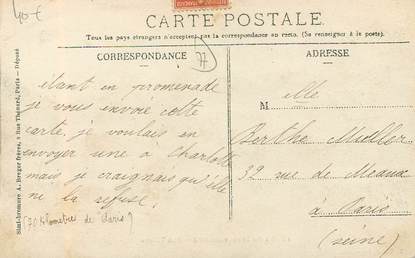 40 €
CARTE POSTALE
Tous les pays étrangers n'acceptent pas la correspondance au recto. (Se renseigner à la poste).
CORRESPONDANCE
77
ADRESSE
étant en promenade
je vous envoie cette
carte, je voulais en
envoyer une à Charlotte
mais je craignais qu'elle
ne la refuse!
(70 kilomètres de Paris)
M elle
Berthe Muller
32 rue de Meaux
à Paris
(seine)
Simili-Bromure A. Breger frères, 9 Rue Thénard, Paris — Déposé